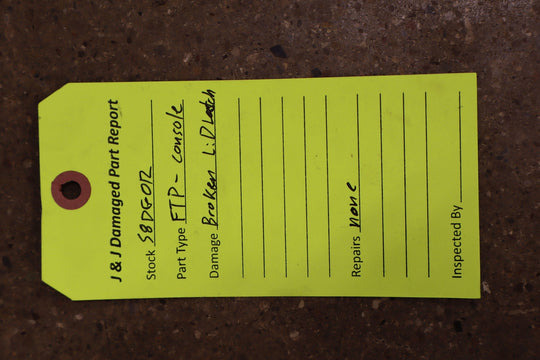 J & J Damaged Part Report
Stock S8DGOR
Part Type FTP - console
Damage Broken L:D Latch
Repairs none
Inspected By